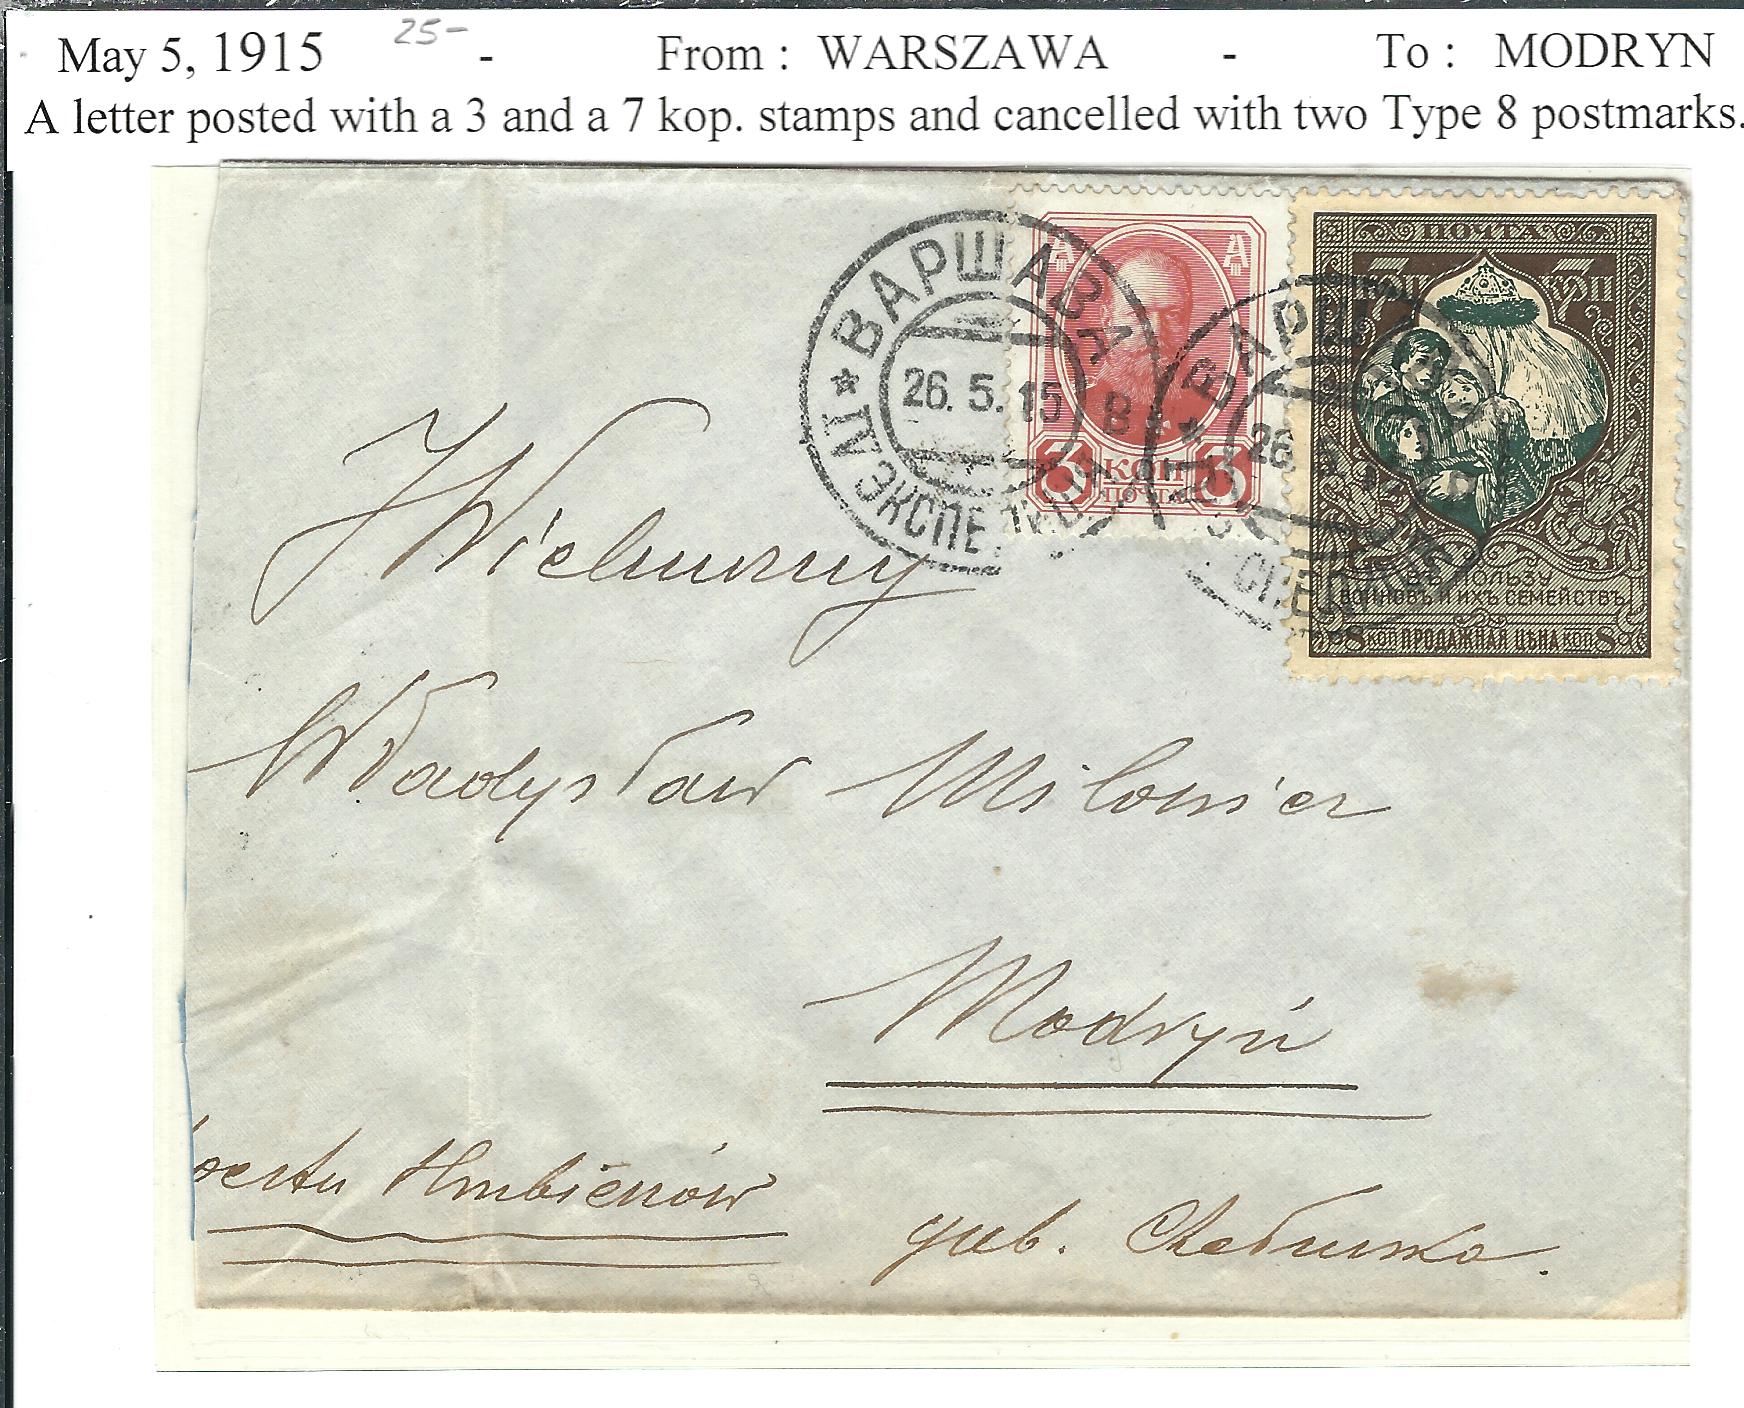 May 5, 1915 25- - From : WARSZAWA - To : MODRYN
A letter posted with a 3 and a 7 kop. stamps and cancelled with two Type 8 postmarks.
ВАРШАВА
26. 5. 15
В
ЭКСПЕ
А А
3 КОП 3
ПОЧТА
ПОЧТА
7 К 7 П
ВЪ ПОЛЬЗУ
ВОИНОВЪ И ИХЪ СЕМЕЙСТВЪ
8 КОП ПРОДАЖНАЯ ЦѢНА КОП 8
ВАРШ
26 5 1
СПЕ
Wielmożny
Władysław Miłonicz
Modryń
Hrubieszów
gub. Chełmska.